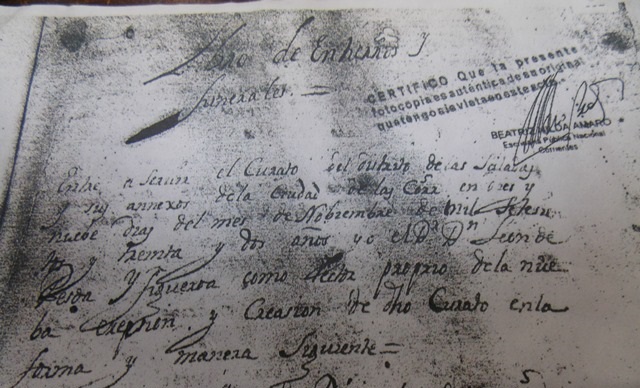 Libro de Entierros y
Funerales =
CERTIFICO Que la presente
fotocopia es auténtica de su original
que tengo a la vista en este acto
BEATRIZ AMARO
Escribana Pública Nacional
Corrientes
Entre a servir el Curato del partido de las Saladas
y sus annexos de la Ciudad de las Corr.
nuebe dias del mes de Nobiembre de mil Setesi
tos y treinta y dos años yo el D.r D.n
y Figueroa como Rector proprio de la nue
ba erepsion y Creasion de dho Curato en la
forma y manera Siguiente =